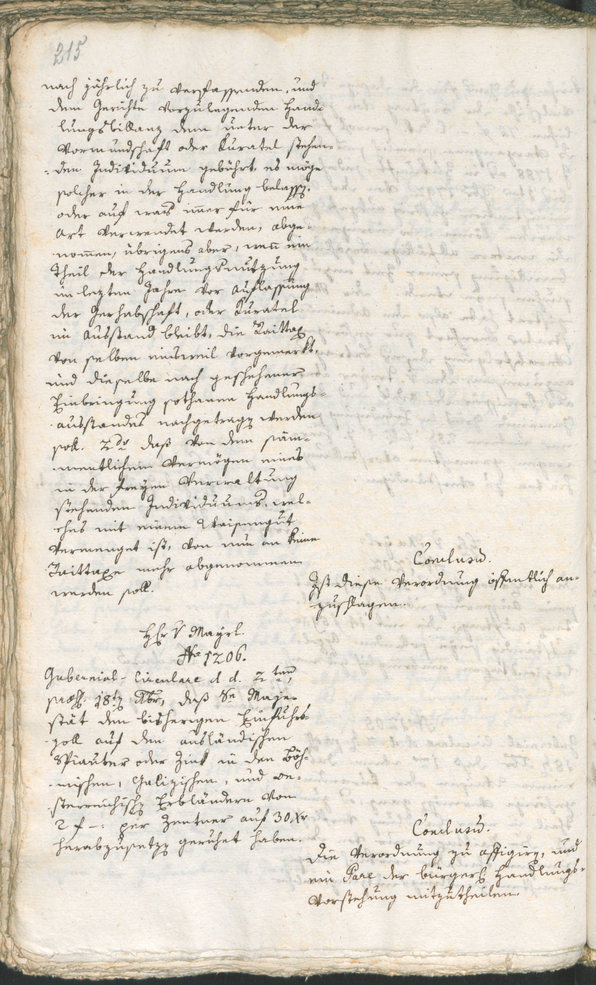 215
nach jährlich zu verfassenden, und
dem Gerichte vorzulegenden Hand-
lungsbilanz dem unter der
Vormundschaft oder Kuratel stehen-
den Individuum gebührt es möge
solcher in der Handlung belassen,
oder auf was immer für eine
Art verwendet werden, abge-
nommen, übrigens aber, wenn ein
Theil der Handlungsnutzung
im lezten Jahre vor Auflassung
der Gerhabschaft, oder Kuratel
im Ausstand bleibt, die Raittax
von selben einsweil vorgemerkt,
und dieselbe nach geschehener
Einbringung sothanen Handlungs-
ausstandes nachgetragen werden
soll. 2do daß von dem säm-
mentlichen Vermögen eines
in der freyen Verwaltung
stehenden Individuums, wel-
ches mit einem Waisengut
vermenget ist, von nun an keine
Raittaxe mehr abgenommen
werden soll.
Conclusum.
Ist diese Verordnung öffentlich an-
zuschlagen.
Hr v Mayrl.
No 1206.
Gubernial-Circulare d. d. 2ten,
18ten daß Se Maje-
stät den bisherigen Einfuhrs-
zoll auf den ausländischen
Spiauter oder Zink in den Böh-
mischen, Galizischen, und oe-
sterreichischen Erbländern von
2 f –: per Zentner auf 30 xr
herabzusetzen geruhet haben.
Conclusum.
Die Verordnung zu affigiren, und
ein Pare der bürgerl. Handlungs-
Vorstehung mitzutheilen.